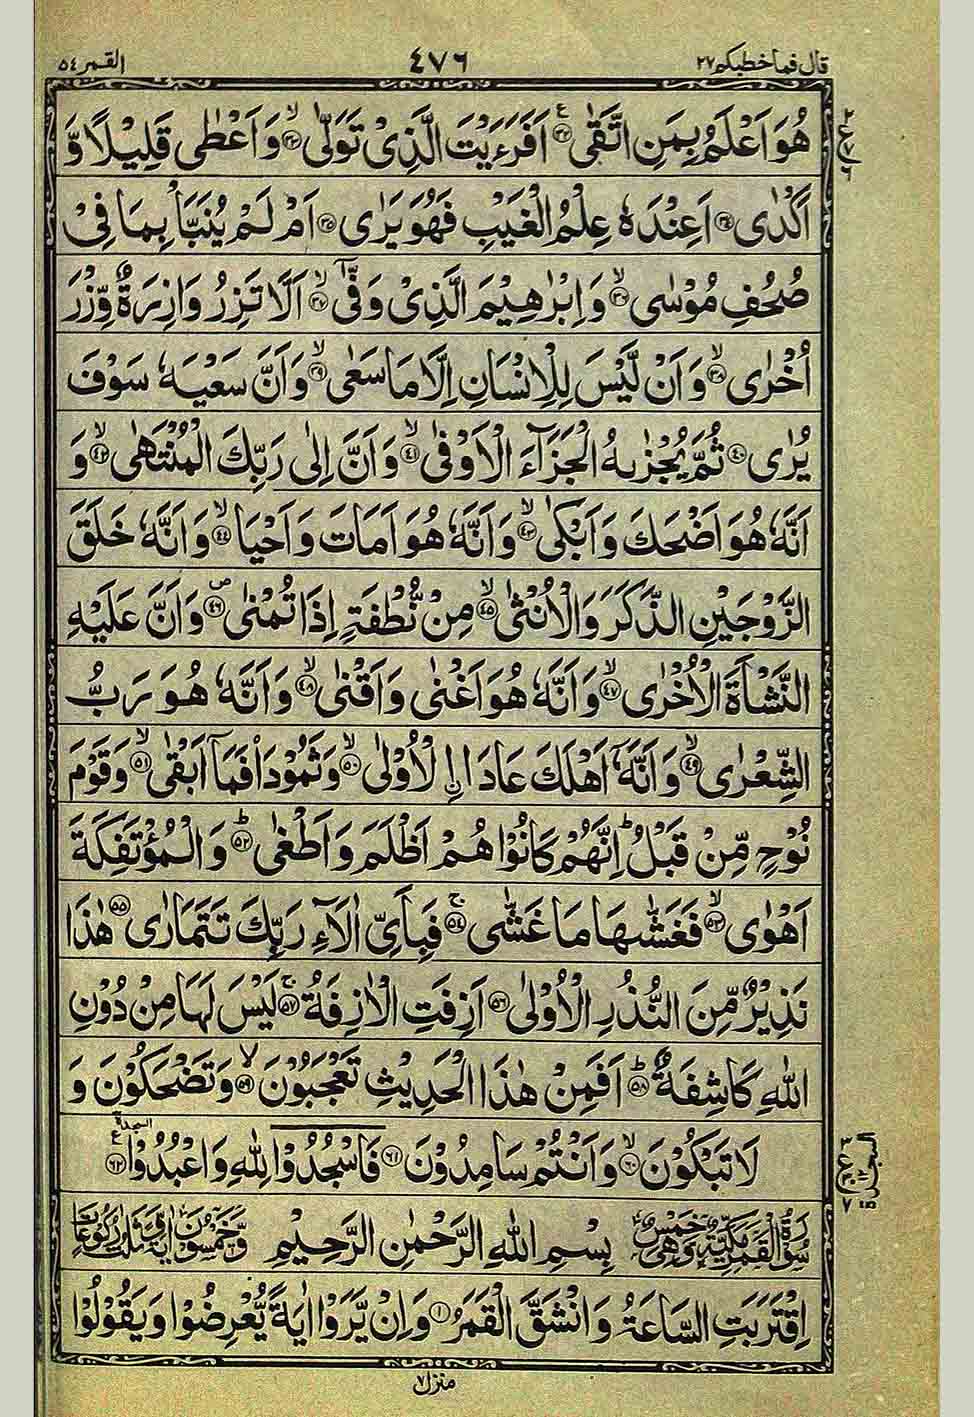 قال فما خطبكم ٢٧
٤٧٦
القمر ٥٤
هُوَ اَعْلَمُ بِمَنِ اتَّقٰى ﴿۳۲﴾ۧ اَفَرَءَيْتَ الَّذِىْ تَوَلّٰىۙ‏ ﴿۳۳﴾ وَاَعْطٰى قَلِيْلًا وَّ
اَكْدٰى‏ ﴿۳۴﴾ اَعِنْدَهٗ عِلْمُ الْغَيْبِ فَهُوَ يَرٰى‏ ﴿۳۵﴾ اَمْ لَمْ يُنَبَّاْ بِمَا فِىْ
صُحُفِ مُوْسٰىۙ‏ ﴿۳۶﴾ وَاِبْرٰهِيْمَ الَّذِىْ وَفّٰىٓ ۙ‏ ﴿۳۷﴾ اَلَّا تَزِرُ وَازِرَةٌ وِّزْرَ
اُخْرٰىۙ‏ ﴿۳۸﴾ وَاَنْ لَّيْسَ لِلْاِنْسَانِ اِلَّا مَا سَعٰىۙ‏ ﴿۳۹﴾ وَاَنَّ سَعْيَهٗ سَوْفَ
يُرٰى‏ ﴿۴۰﴾ ثُمَّ يُجْزٰٮهُ الْجَزَآءَ الْاَوْفٰىۙ‏ ﴿۴۱﴾ وَاَنَّ اِلٰى رَبِّكَ الْمُنْتَهٰىۙ‏ ﴿۴۲﴾ وَ
اَنَّهٗ هُوَ اَضْحَكَ وَاَبْكٰىۙ‏ ﴿۴۳﴾ وَاَنَّهٗ هُوَ اَمَاتَ وَاَحْيَاۙ‏ ﴿۴۴﴾ وَاَنَّهٗ خَلَقَ
الزَّوْجَيْنِ الذَّكَرَ وَالْاُنْثٰىۙ‏ ﴿۴۵﴾ مِنْ نُّطْفَةٍ اِذَا تُمْنٰى‏ ﴿۴۶﴾ وَاَنَّ عَلَيْهِ
النَّشْاَةَ الْاُخْرٰىۙ‏ ﴿۴۷﴾ وَاَنَّهٗ هُوَ اَغْنٰى وَاَقْنٰىۙ‏ ﴿۴۸﴾ وَاَنَّهٗ هُوَ رَبُّ
الشِّعْرٰىۙ‏ ﴿۴۹﴾ وَاَنَّهٗۤ اَهْلَكَ عَادَا۟ اۨلْاُوْلٰىۙ‏ ﴿۵۰﴾ وَثَمُوْدَا۟ فَمَاۤ اَبْقٰىۙ‏ ﴿۵۱﴾ وَقَوْمَ
نُوْحٍ مِّنْ قَبْلُؕ اِنَّهُمْ كَانُوْا هُمْ اَظْلَمَ وَاَطْغٰىؕ‏ ﴿۵۲﴾ وَالْمُؤْتَفِكَةَ
اَهْوٰىۙ‏ ﴿۵۳﴾ فَغَشّٰٮهَا مَا غَشّٰى‌ۚ‏ ﴿۵۴﴾ فَبِاَىِّ اٰلَاۤءِ رَبِّكَ تَتَمَارٰى‏ ﴿۵۵﴾ هٰذَا
نَذِيْرٌ مِّنَ النُّذُرِ الْاُوْلٰى‏ ﴿۵۶﴾ اَزِفَتِ الْاٰزِفَةُ‌ۚ‏ ﴿۵۷﴾ لَيْسَ لَهَا مِنْ دُوْنِ
اللّٰهِ كَاشِفَةٌؕ‏ ﴿۵۸﴾ اَفَمِنْ هٰذَا الْحَدِيْثِ تَعْجَبُوْنَۙ‏ ﴿۵۹﴾ وَتَضْحَكُوْنَ وَ
لَا تَبْكُوْنَۙ‏ ﴿۶۰﴾ وَاَنْتُمْ سَامِدُوْنَ‏ ﴿۶۱﴾ فَاسْجُدُوْا لِلّٰهِ وَاعْبُدُوْا ﴿۶۲﴾ۧ السجدة
سُوْرَةُ الْقَمَرِ مَكِّيَّةٌ وَّهِىَ خَمْسٌ بِسْمِ اللّٰهِ الرَّحْمٰنِ الرَّحِيْمِ وَّخَمْسُوْنَ اٰيَةً وَّثَلٰثُ رُكُوْعَاتٍ
اِقْتَرَبَتِ السَّاعَةُ وَانْشَقَّ الْقَمَرُ‏ ﴿۱﴾ وَاِنْ يَّرَوْا اٰيَةً يُّعْرِضُوْا وَيَقُوْلُوْا
منزل ٧